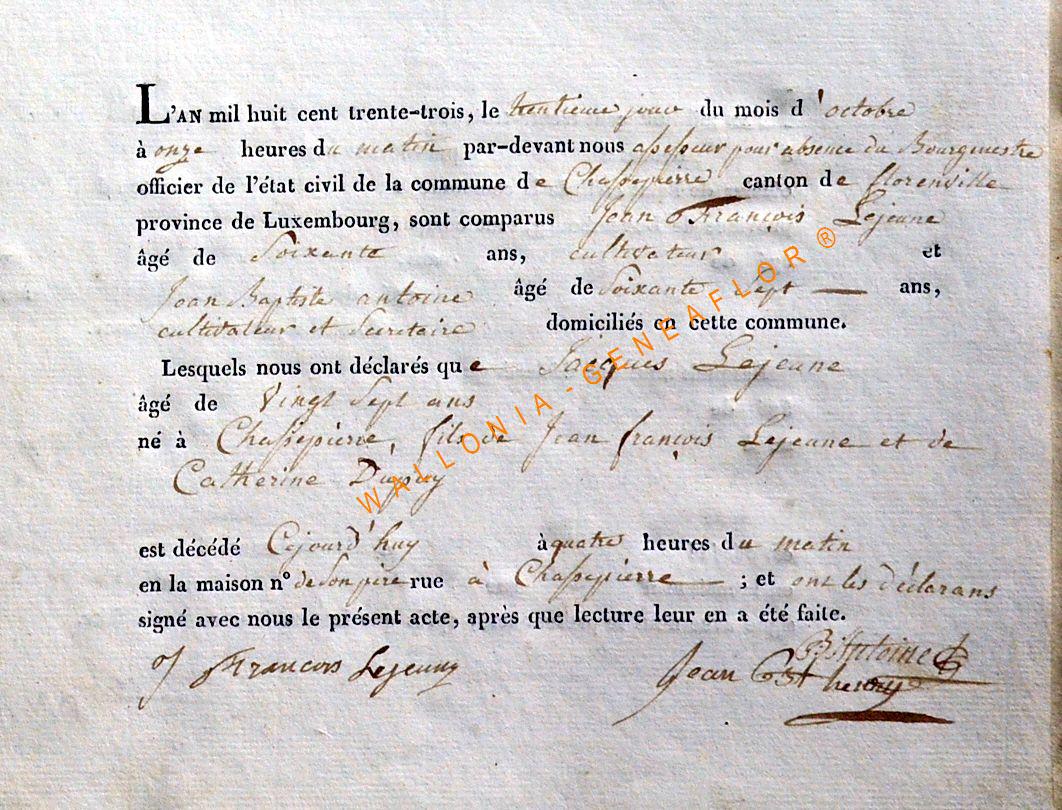 L'AN mil huit cent trente-trois, le trentieme jour du mois d'octobre
à onze heures du matin par-devant nous assesseur pour absence du Bourgmestre
officier de l'état civil de la commune de Chassepierre canton de florenville
province de Luxembourg, sont comparus Jean François Lejeune
âgé de Soixante ans, cultivateur et
Jean Baptiste antoine âgé de Soixante Sept ans,
cultivateur et Secretaire domiciliés en cette commune.
Lesquels nous ont déclarés que Jacques Lejeune
âgé de Vingt Sept ans
né à Chassepierre, fils de Jean françois Lejeune et de
Catherine Dupuy
est décédé Cejourd'huy à quatre heures du matin
en la maison n° de Son père rue à Chassepierre ; et ont les déclarans
signé avec nous le présent acte, après que lecture leur en a été faite.
J François Lejeune Jean Bst henry
B. Antoine
WALLONIA - GENEAFLOR ®